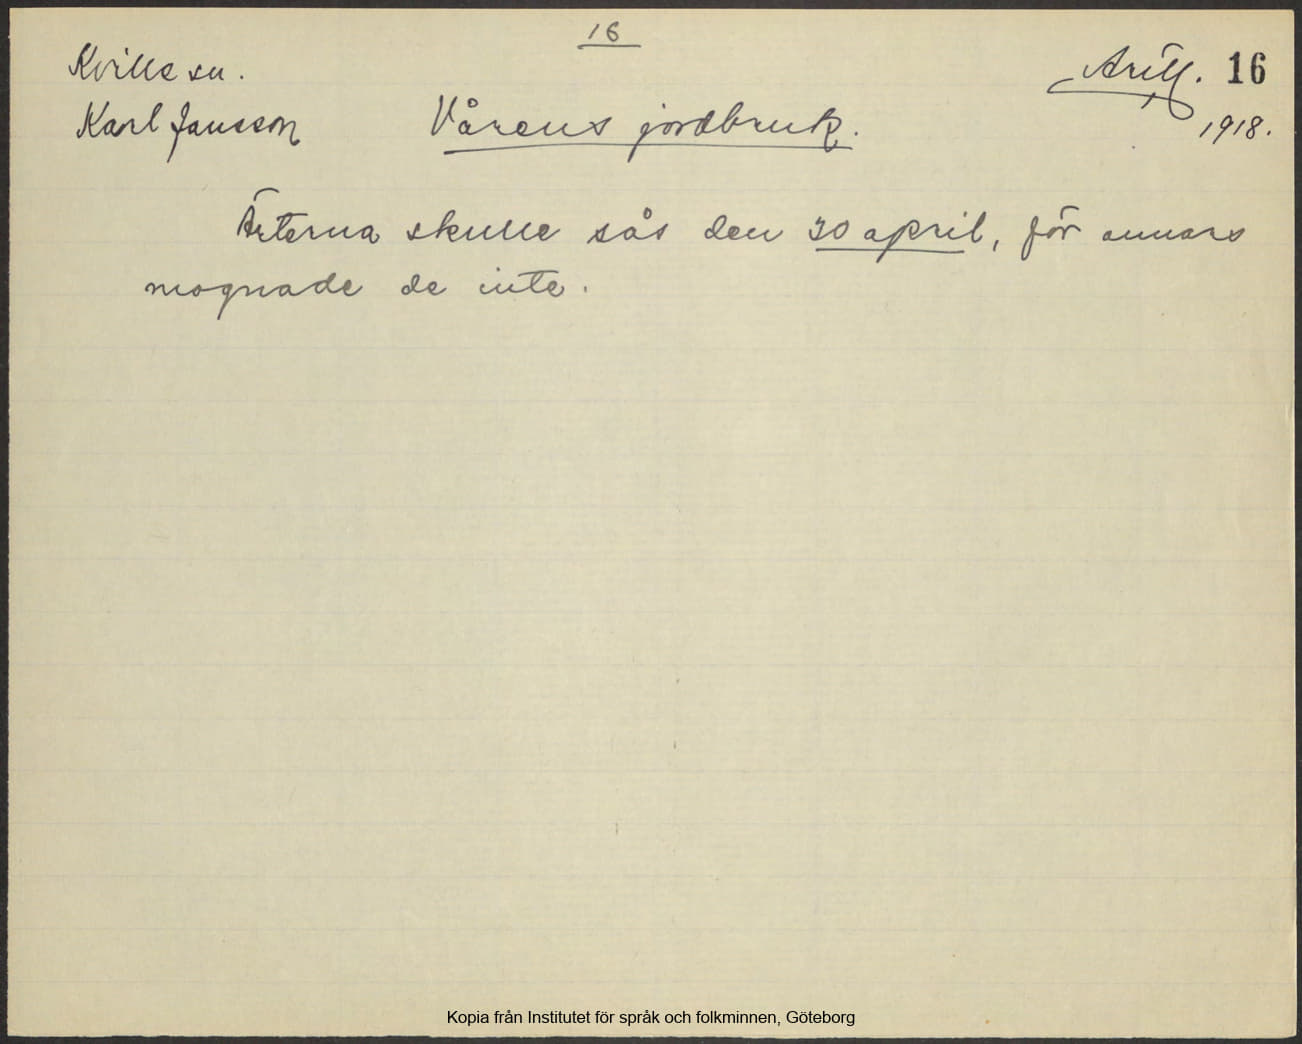 16
Kville sn.
16
Karl Jansson
Vårens jordbruk.
1918.
Ärterna skulle sås den 30 april, för annars
mognade de inte.
Kopia från Institutet för språk och folkminnen, Göteborg